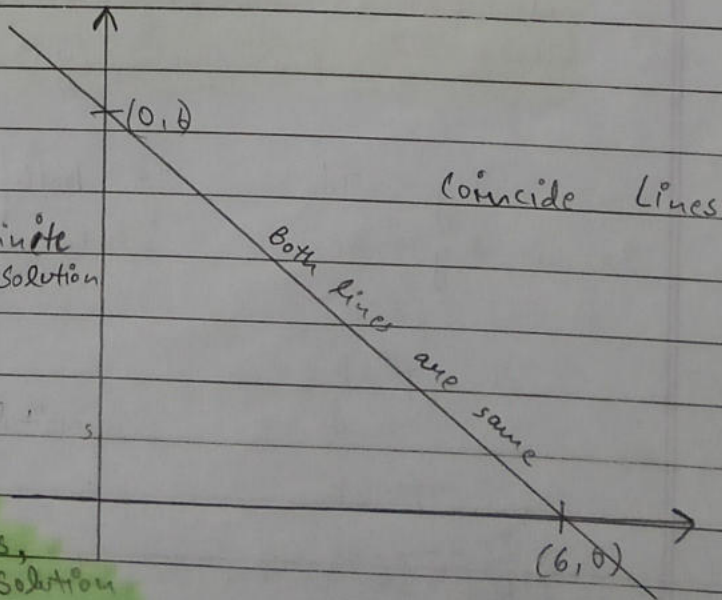 (0, 6)
Coincide Lines
inite
solution
Both lines are same
s
(6, 0)
s,
solution